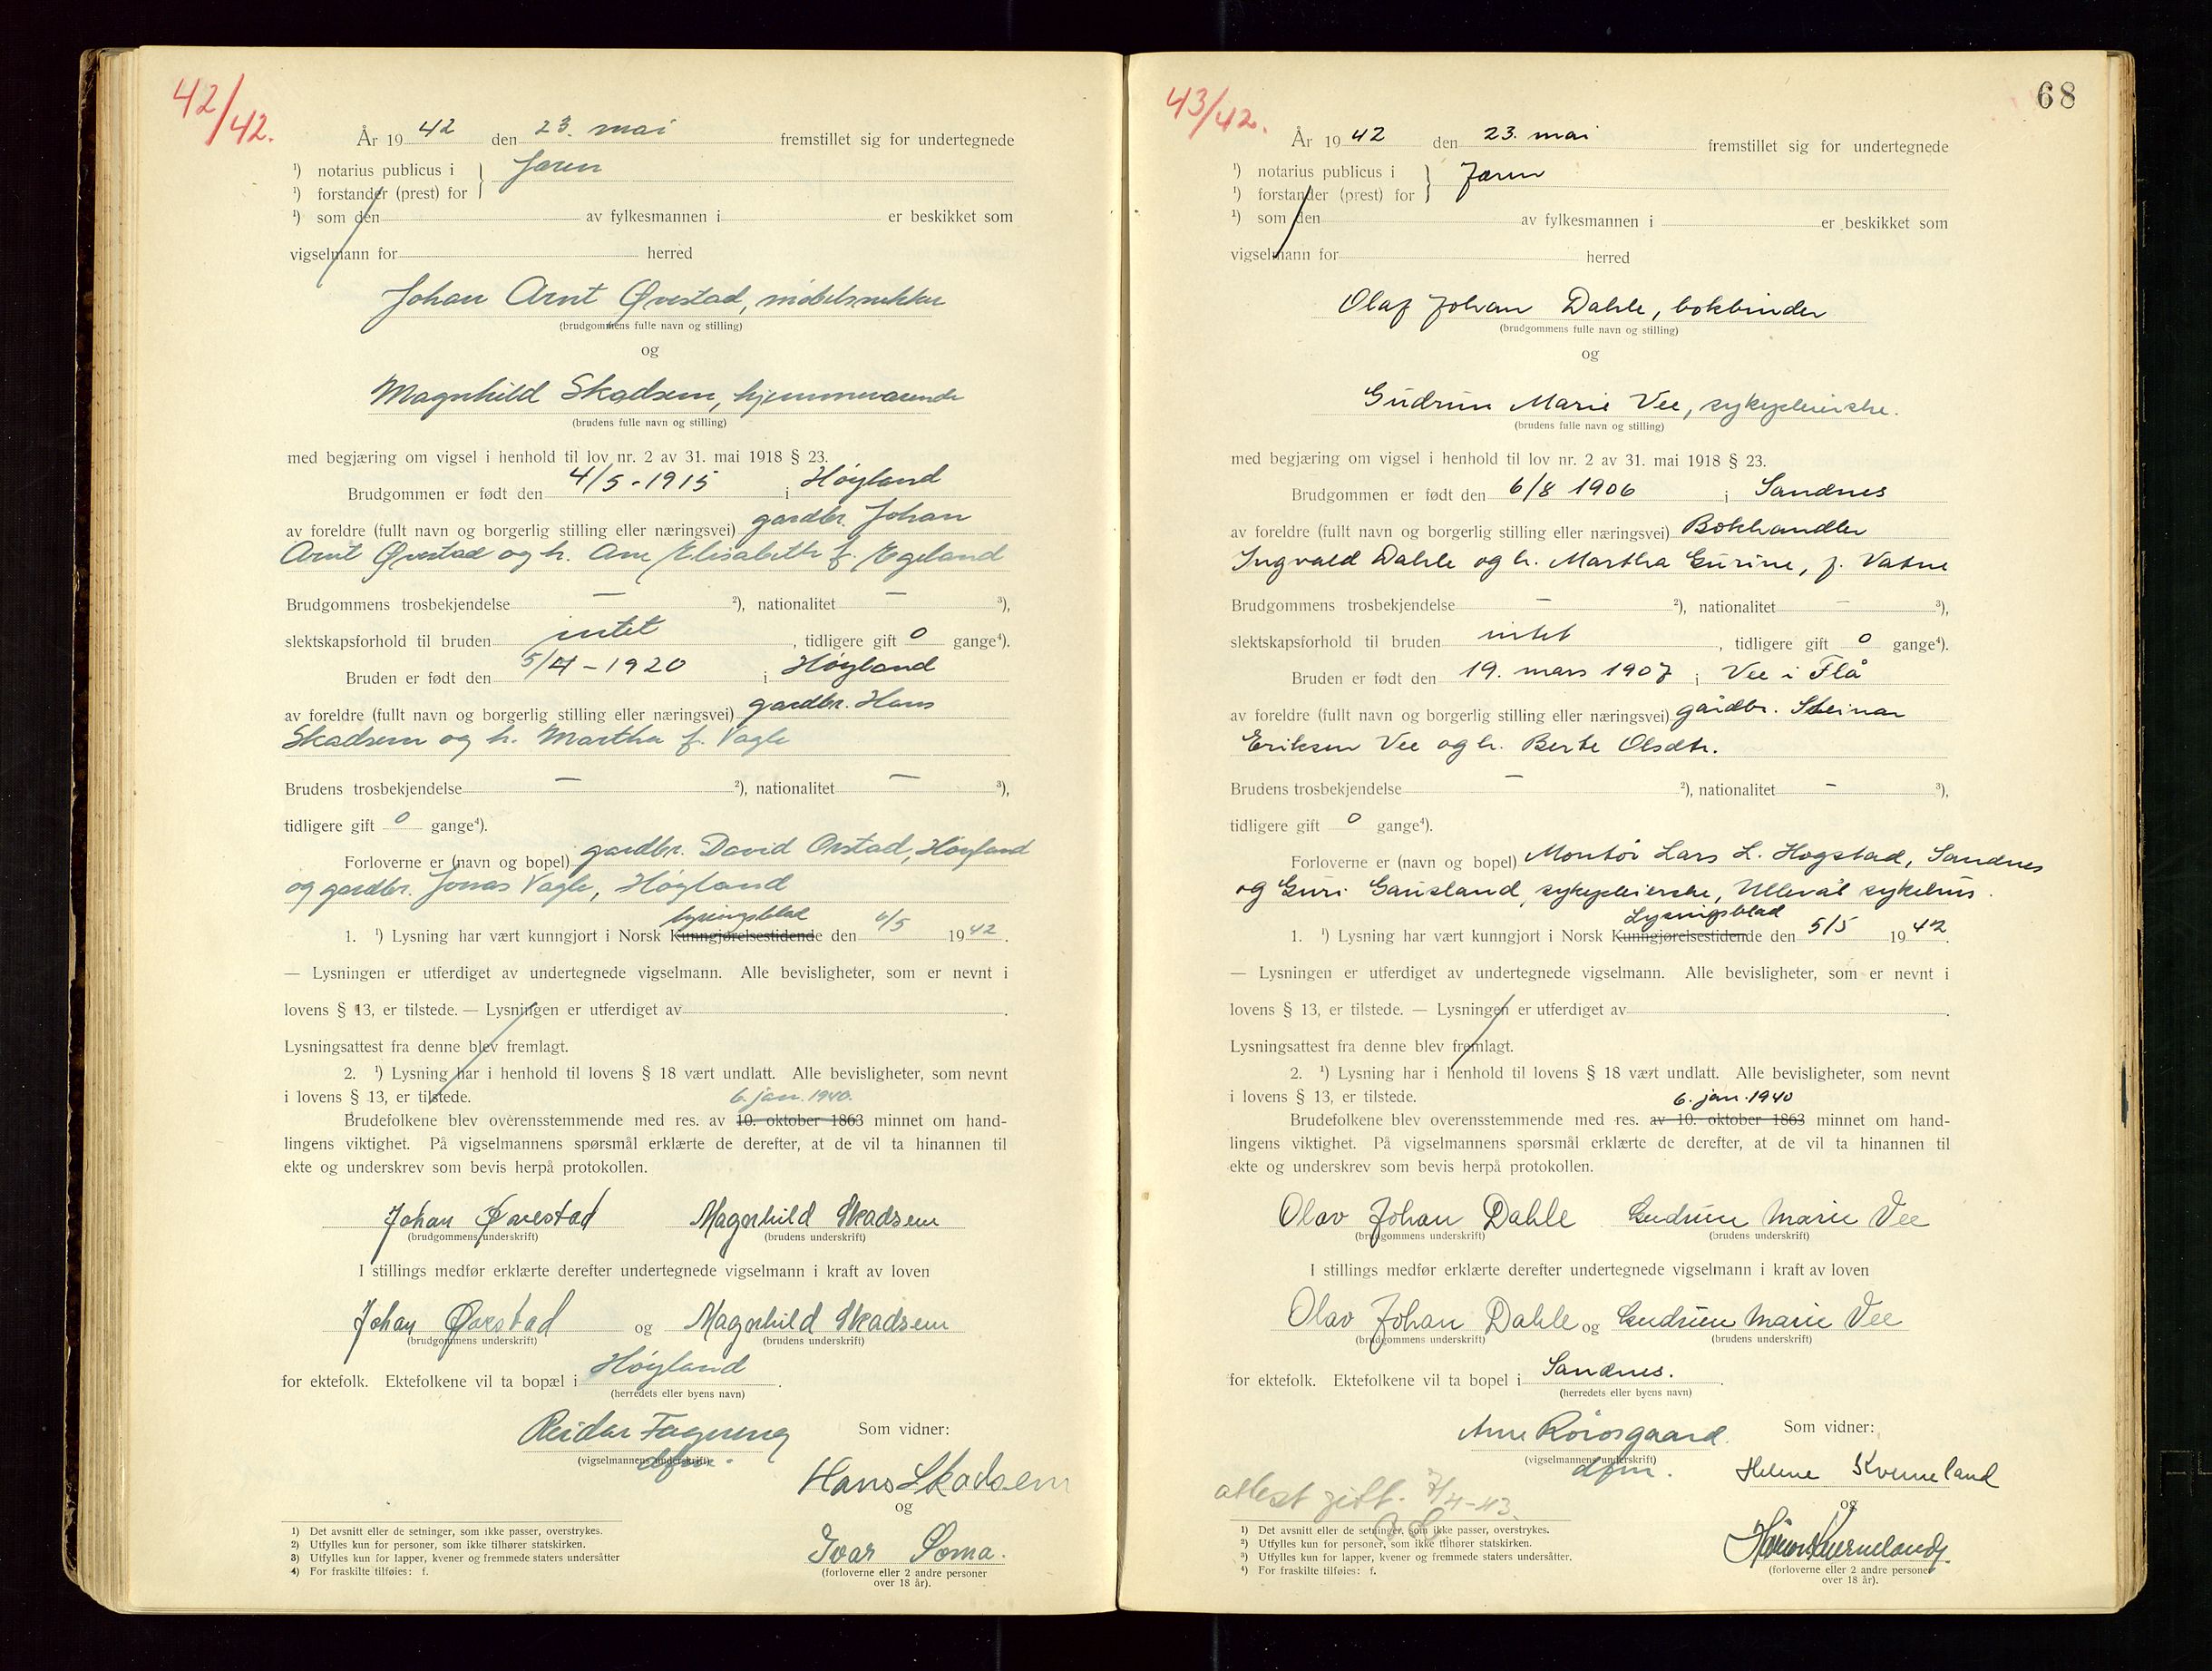 42/42.
År 1942 den 23. mai fremstillet sig for undertegnede
¹) notarius publicus i } Jæren
¹) forstander (prest) for
¹) som den av fylkesmannen i er beskikket som
vigselmann for herred
Johan Arnt Øvestad, møbelsnekker
(brudgommens fulle navn og stilling)
og
Magnhild Skadsem, hjemmeværende
(brudens fulle navn og stilling)
med begjæring om vigsel i henhold til lov nr. 2 av 31. mai 1918 § 23.
Brudgommen er født den 4/5-1915 i Høyland
av foreldre (fullt navn og borgerlig stilling eller næringsvei) gardbr. Johan
Arnt Øvestad og h. Ane Elisabeth f. Egeland
Brudgommens trosbekjendelse — ²), nationalitet — ³),
slektskapsforhold til bruden intet, tidligere gift 0 gange⁴).
Bruden er født den 5/4-1920 i Høyland
av foreldre (fullt navn og borgerlig stilling eller næringsvei) gardbr. Hans
Skadsem og h. Martha f. Vagle
Brudens trosbekjendelse — ²), nationalitet — ³),
tidligere gift 0 gange⁴).
Forloverne er (navn og bopel) gardbr. David Orstad, Høyland
og gardbr. Jonas Vagle, Høyland
lysingsblad
1. ¹) Lysning har vært kunngjort i Norsk Kunngjørelsestidende den 6/5 1942.
— Lysningen er utferdiget av undertegnede vigselmann. Alle bevisligheter, som er nevnt i
lovens § 13, er tilstede. — Lysningen er utferdiget av .
Lysningsattest fra denne blev fremlagt.
2. ¹) Lysning har i henhold til lovens § 18 vært undlatt. Alle bevisligheter, som nevnt
i lovens § 13, er tilstede. 6. jan. 1940.
Brudefolkene blev overensstemmende med res. av 10. oktober 1863 minnet om hand-
lingens viktighet. På vigselmannens spørsmål erklærte de derefter, at de vil ta hinannen til
ekte og underskrev som bevis herpå protokollen.
Johan Øvestad Magnhild Skadsem
(brudgommens underskrift) (brudens underskrift)
I stillings medfør erklærte derefter undertegnede vigselmann i kraft av loven
Johan Øvestad og Magnhild Skadsem
(brudgommens underskrift) (brudens underskrift)
for ektefolk. Ektefolkene vil ta bopæl i Høyland.
(herredets eller byens navn)
Reidar Fagereng Som vidner:
(vigselmannens underskrift)
dfm.
Hans Skadsem
og
Ivar Soma.
(forloverne eller 2 andre personer
over 18 år).
1) Det avsnitt eller de setninger, som ikke passer, overstrykes.
2) Utfylles kun for personer, som ikke tilhører statskirken.
3) Utfylles kun for lapper, kvener og fremmede staters undersåtter
4) For fraskilte tilføies: f.
68
43/42.
År 1942 den 23. mai fremstillet sig for undertegnede
¹) notarius publicus i } Jæren
¹) forstander (prest) for
¹) som den av fylkesmannen i er beskikket som
vigselmann for herred
Olaf Johan Dahle, bokbinder
(brudgommens fulle navn og stilling)
og
Gudrun Marie Vee, sykepleierske.
(brudens fulle navn og stilling)
med begjæring om vigsel i henhold til lov nr. 2 av 31. mai 1918 § 23.
Brudgommen er født den 6/8 1906 i Sandnes
av foreldre (fullt navn og borgerlig stilling eller næringsvei) Bokhandler
Ingvald Dahle og h. Martha Gurine, f. Vatne
Brudgommens trosbekjendelse — ²), nationalitet — ³),
slektskapsforhold til bruden intet, tidligere gift 0 gange⁴).
Bruden er født den 19. mars 1907 i Vee i Flå
av foreldre (fullt navn og borgerlig stilling eller næringsvei) gårdbr. Steinar
Eriksen Vee og h. Berte Olsdtr.
Brudens trosbekjendelse — ²), nationalitet — ³),
tidligere gift 0 gange⁴).
Forloverne er (navn og bopel) Montør Lars L. Hogstad, Sandnes
og Guri Gausland, sykepleierske, Ullevål sykehus.
Lysningsblad
1. ¹) Lysning har vært kunngjort i Norsk Kunngjørelsestidende den 5/5 1942.
— Lysningen er utferdiget av undertegnede vigselmann. Alle bevisligheter, som er nevnt i
lovens § 13, er tilstede. — Lysningen er utferdiget av .
Lysningsattest fra denne blev fremlagt.
2. ¹) Lysning har i henhold til lovens § 18 vært undlatt. Alle bevisligheter, som nevnt
i lovens § 13, er tilstede. 6. jan. 1940
Brudefolkene blev overensstemmende med res. av 10. oktober 1863 minnet om hand-
lingens viktighet. På vigselmannens spørsmål erklærte de derefter, at de vil ta hinannen til
ekte og underskrev som bevis herpå protokollen.
Olav Johan Dahle Gudrun Marie Vee
(brudgommens underskrift) (brudens underskrift)
I stillings medfør erklærte derefter undertegnede vigselmann i kraft av loven
Olav Johan Dahle og Gudrun Marie Vee
(brudgommens underskrift) (brudens underskrift)
for ektefolk. Ektefolkene vil ta bopel i Sandnes.
(herredets eller byens navn)
Arne Rørosgaard. Som vidner:
(vigselmannens underskrift)
dfm.
Helene Kverneland
attest gitt. 7/4-43.
og
Håkon Kverneland
(forloverne eller 2 andre personer
over 18 år).
1) Det avsnitt eller de setninger, som ikke passer, overstrykes.
2) Utfylles kun for personer, som ikke tilhører statskirken.
3) Utfylles kun for lapper, kvener og fremmede staters undersåtter.
4) For fraskilte tilføies: f.